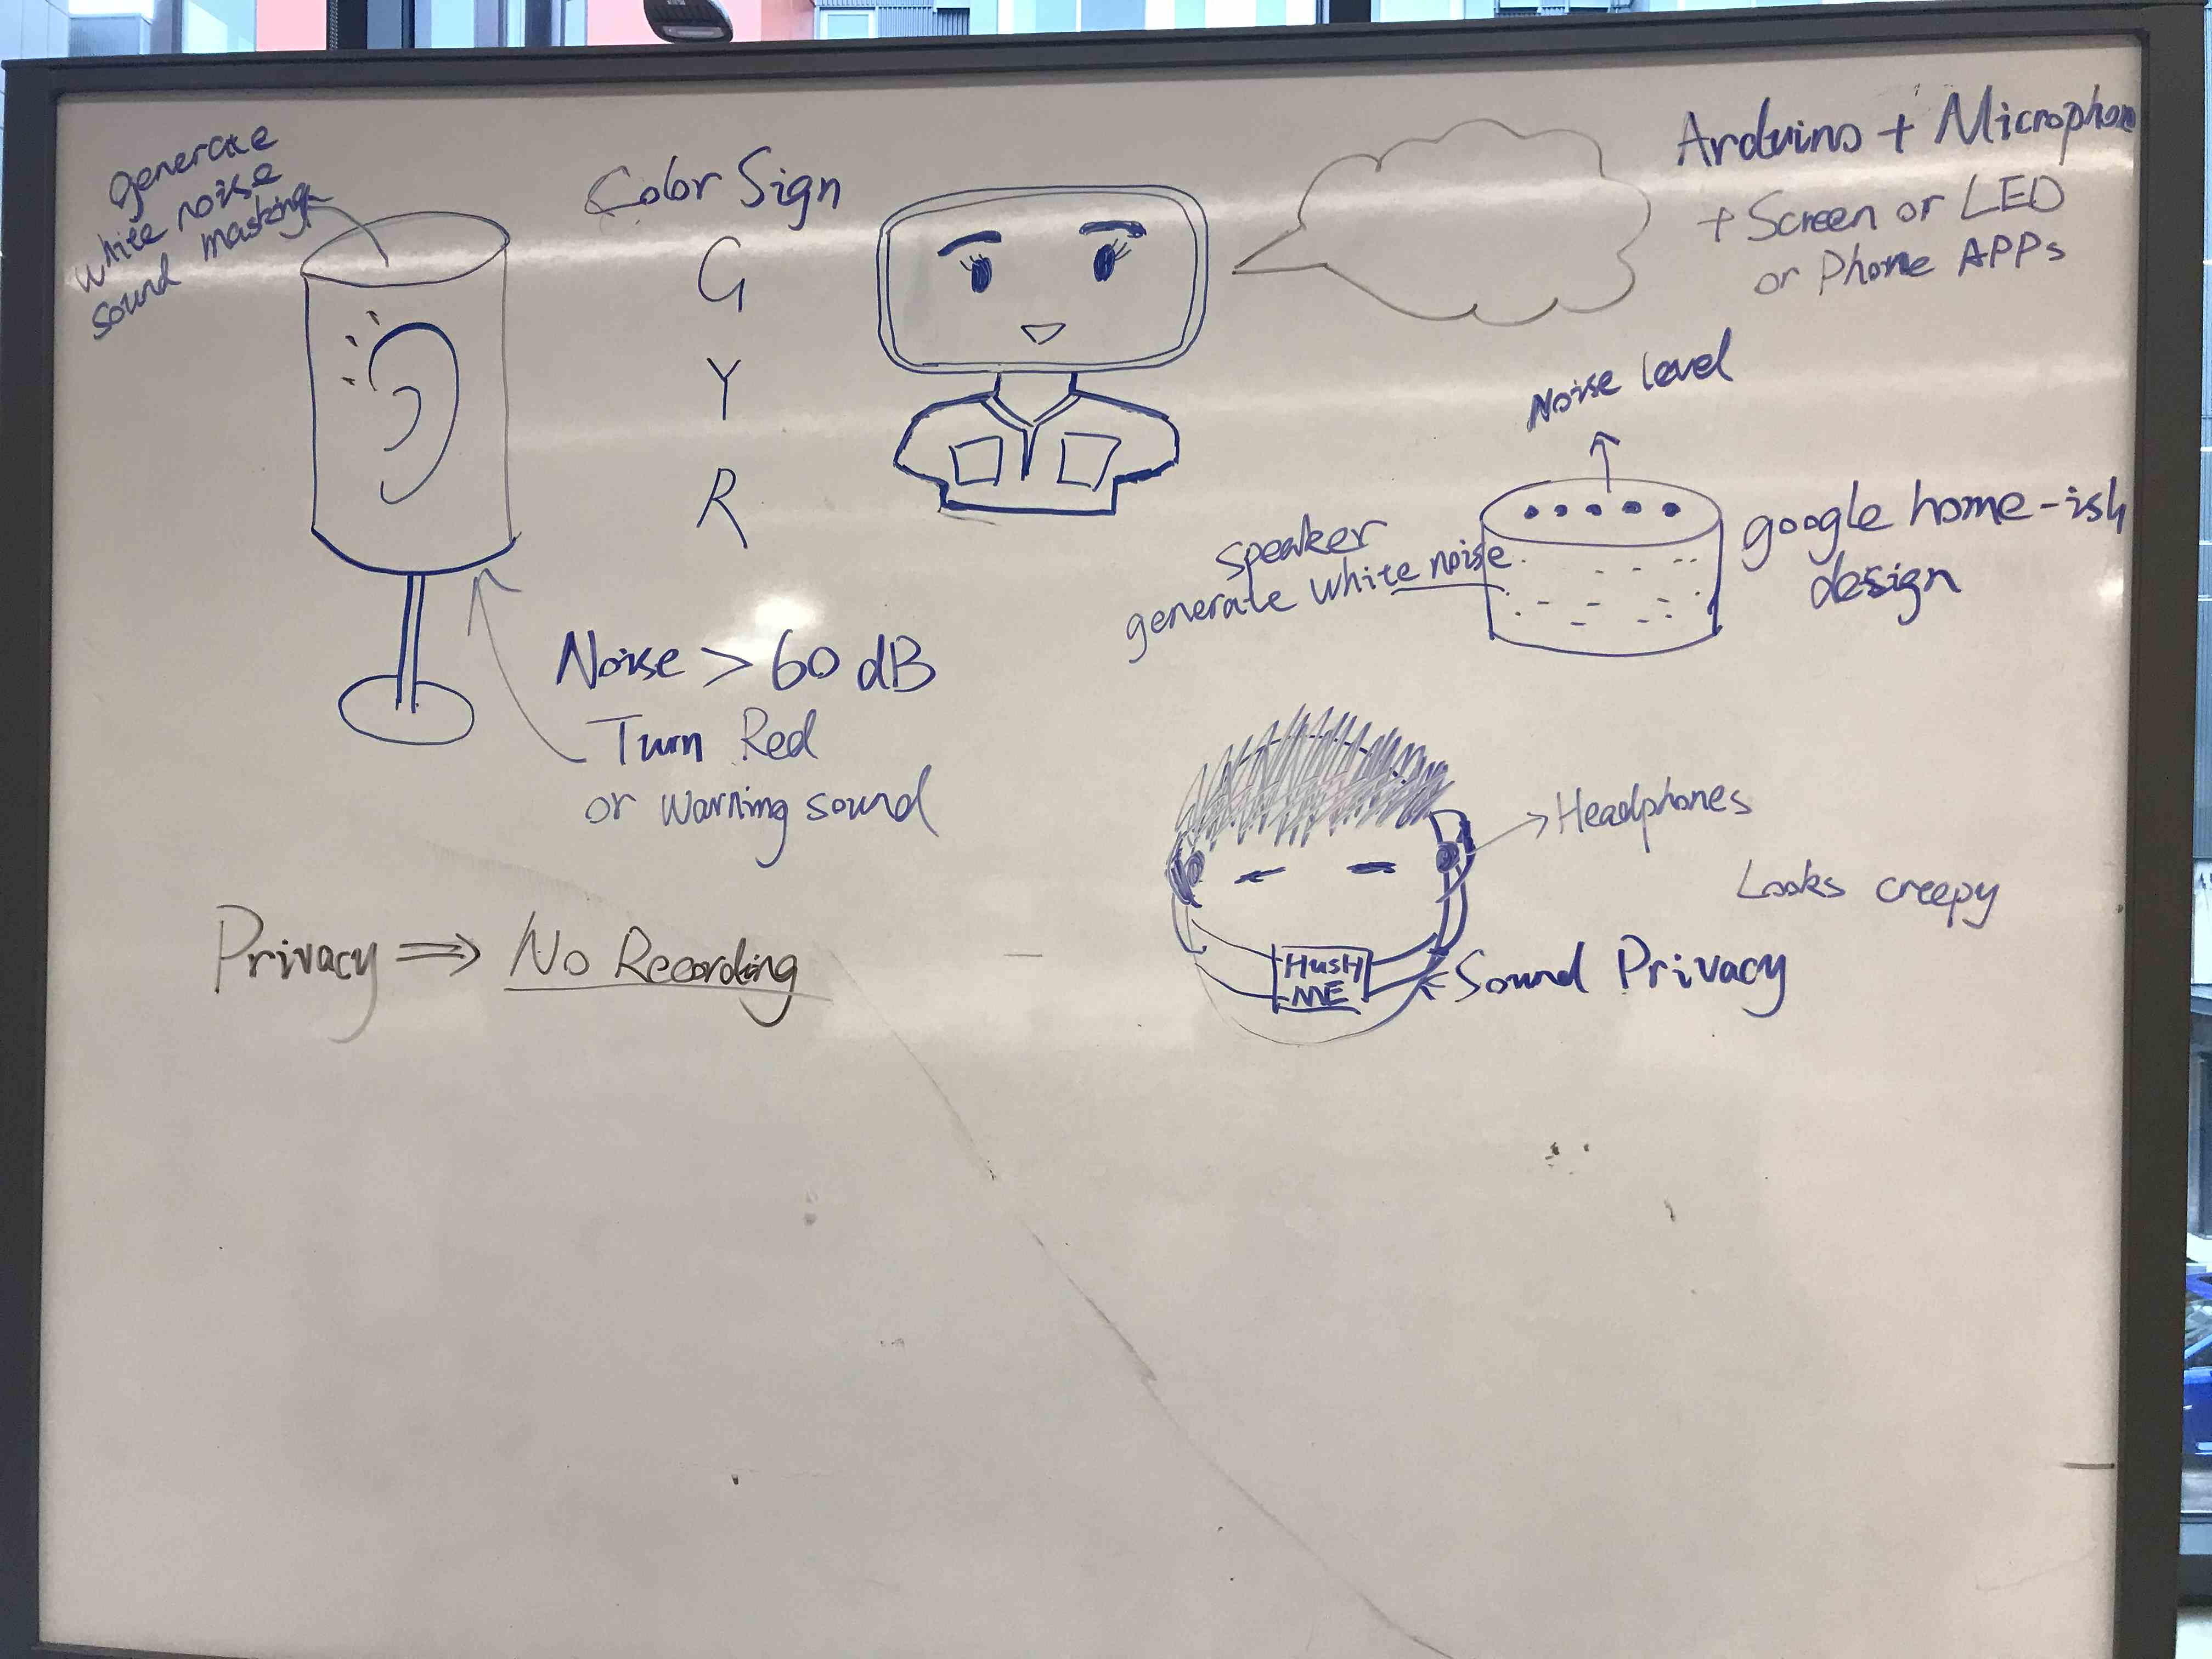 generate
white noise
sound masking
Color Sign
G
Y
R
Arduino + Microphone
+ Screen or LED
or Phone APPs
Noise level
speaker
generate white noise
google home-ish
design
Noise > 60 dB
Turn Red
or warning sound
Headphones
Looks creepy
Privacy ⇒ No Recording
HusH
ME
Sound Privacy